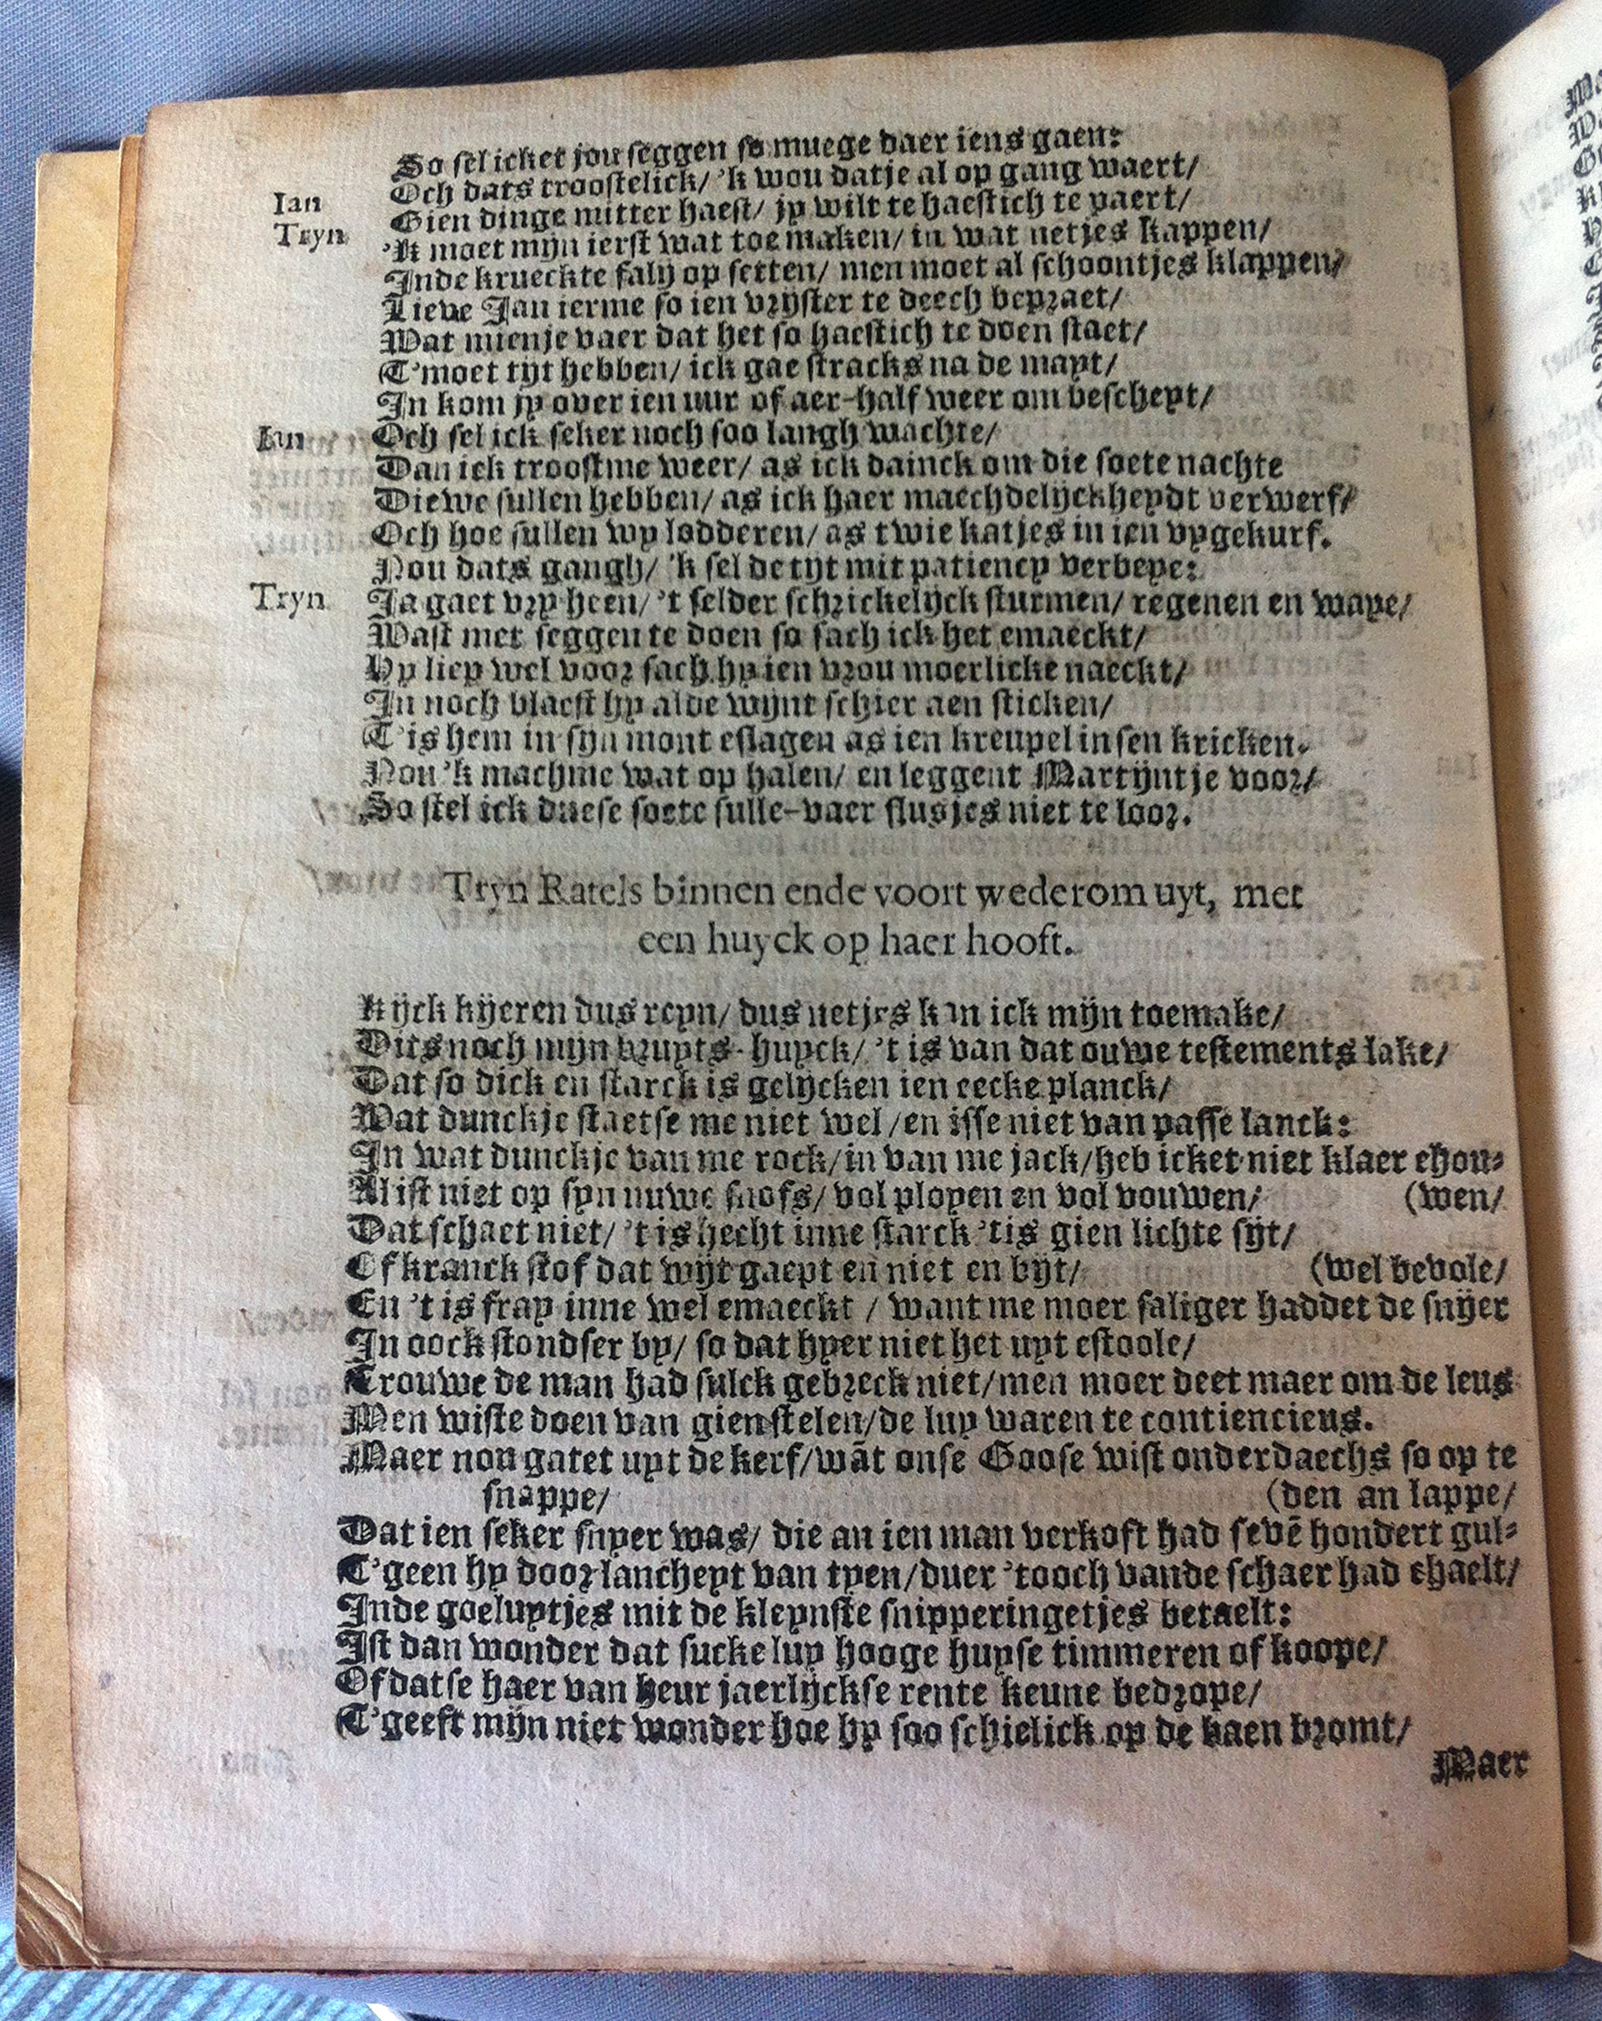 So sel icket jou seggen so muege daer iens gaen:
Ian Och dats troostelick/ 'k wou datje al op gang waert/
Tryn Gien dinge mitter haest/ jy wilt te haestich te paert/
'k moet mijn ierst wat toe maken/ in wat netjes kappen/
Inde krueckte falij op setten/ men moet al schoontjes klappen/
Lieve Jan ierme so ien vrijster te deech bepraet/
Wat mienje vaer dat het so haestich te doen staet/
T'moet tijt hebben/ ick gae stracks na de mayt/
In kom jy over ien uur of aer-half weer om bescheyt/
Ian Och sel ick seker noch soo langh wachte/
Dan ick troostme weer/ as ick dainck om die soete nachte
Die we sullen hebben/ as ick haer maechdelijckheydt verwerf/
Och hoe sullen wy lodderen/ as twie katjes in ien vygekurf.
Nou dats gangh/ 'k sel de tijt mit patiency verbeye:
Tryn Ja gaet vry heen/ 't selder schrickelijck sturmen/ regenen en waye/
Wast met seggen te doen so sach ick het emaeckt/
Hy liep wel voor sach hy ien vrou moerlicke naeckt/
In noch blaest hy al de wijnt schier aen sticken/
T'is hem in sijn mont eslagen as ien kreupel in sen kricken.
Nou 'k mach me wat op halen/ en leggent Martijntje voor/
So stel ick duese soete sulle-vaer flusjes niet te loor.
Tryn Ratels binnen ende voort wederom uyt, met
een huyck op haer hooft.
Kijck kijeren dus reyn/ dus netjes kan ick mijn toemake/
Dits noch mijn bruyts-huyck/ 't is van dat ouwe testements lake/
Dat so dick en starck is gelijcken ien eecke planck/
Wat dunckje staetse me niet wel/en isse niet van passe lanck:
In wat dunckje van me rock/in van me jack/heb icket niet klaer ehou-
Al ist niet op syn nuwe snofs/ vol ployen en vol vouwen/ (wen/
Dat schaet niet/ 't is hecht inne starck 'tis gien lichte sijt/
Of kranck stof dat wijt gaept en niet en bijt/ (wel bevole/
En 't is fray inne wel emaeckt / want me moer saliger haddet de snijer
In oock stondser by/ so dat hyer niet het uyt estoole/
Trouwe de man had sulck gebreck niet/men moer deet maer om de leus
Men wiste doen van gien stelen/de luy waren te contiencieus.
Maer nou gatet uyt de kerf/wāt onse Goose wist onderdaechs so op te
snappe/ (den an lappe/
Dat ien seker snyer was/ die an ien man verkoft had sevē hondert gul-
T'geen hy door lancheyt van tyen/duer 'tooch vande schaer had ehaelt/
Inde goeluytjes mit de kleynste snipperingetjes betaelt:
Ist dan wonder dat sucke luy hooge huyse timmeren of koope/
Of datse haer van heur jaerlijckse rente keune bedrope/
T'geeft mijn niet wonder hoe hy soo schielick op de baen bromt/
Maer